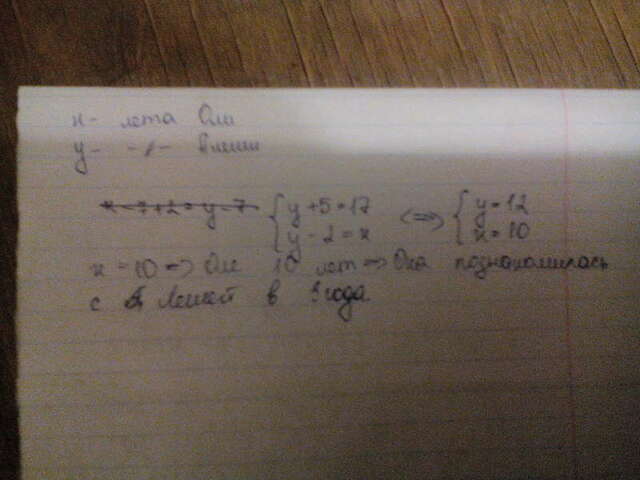 x - лета Оли
y - -//- Алеши
x - 7 + 2 = y - 7 { y + 5 = 17 <=> { y = 12
y - 2 = x x = 10
x = 10 => Оле 10 лет => Она познакомилась
с Лешей в 3 года